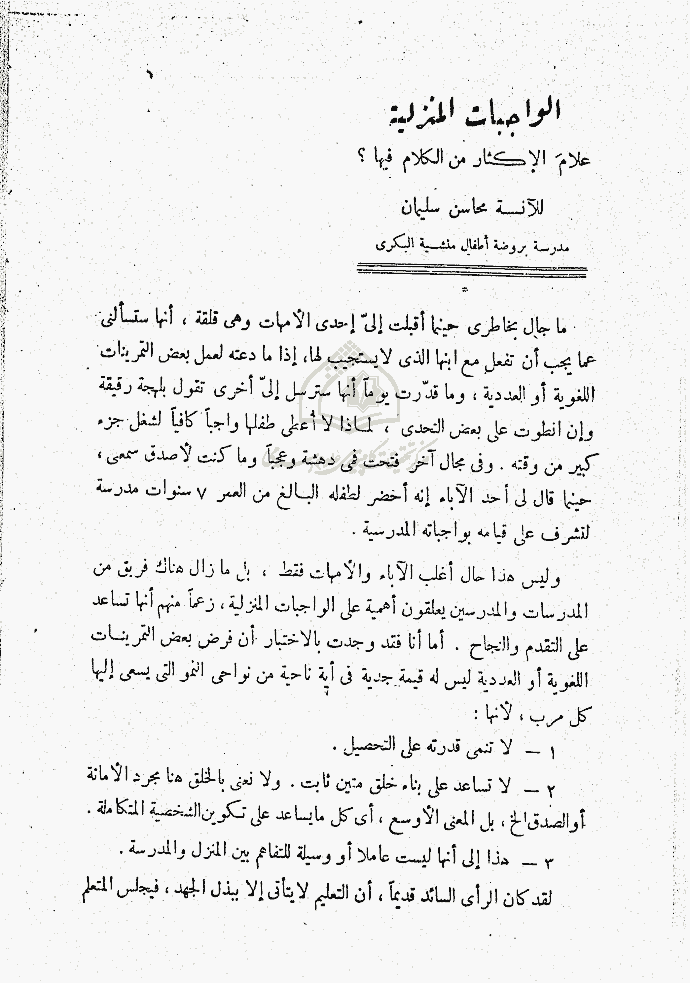 الواجبات المنزلية
علامَ الإكثار من الكلام فيها ؟
للآنسة محاسن سليمان
مدرسة بروضة أطفال منشية البكرى
ما جال بخاطرى حينما أقبلت إلىّ إحدى الأمهات وهى قلقة ، أنها ستسألنى
عما يجب أن تفعل مع ابنها الذى لا يستجيب لها، إذا ما دعته لعمل بعض التمرينات
اللغوية أو العددية ، وما قدّرت يوماً أنها سترسل إلىّ أخرى تقول بلهجة رقيقة
وإن انطوت على بعض التحدى ، لمـاذا لا أعطى طفلها واجباً كافياً لشغل جزء
كبير من وقته . وفى مجال آخر فتحت فمى دهشة وعجباً وما كنت لأصدق سمعى ،
حينما قال لى أحد الآباء إنه أحضر لطفله البـالغ من العمر ٧ سنوات مدرسة
لتشرف على قيامه بواجباته المدرسية .
وليس هذا حال أغلب الآباء والأمهات فقط ، بل ما زال هناك فريق من
المدرسات والمدرسين يعلقون أهمية على الواجبات المنزلية ، زعماً منهم أنها تساعد
على التقدم والنجاح . أما أنا فقد وجدت بالاختبار أن فرض بعض التمرينـات
اللغوية أو العددية ليس له قيمة جدية فى أية ناحية من نواحى النمو التى يسعى إليها
كل مرب ، لأنها :
١ — لا تنمى قدرته على التحصيل .
٢ — لا تساعد على بناء خلق متين ثابت . ولا نعنى بالخلق هنا مجرد الأمانة
أو الصدق الخ ، بل المعنى الأوسع ، أى كل ما يساعد على تكوين الشخصية المتكاملة .
٣ — هذا إلى أنها ليست عاملا أو وسيلة للتفاهم بين المنزل والمدرسة .
لقد كان الرأى السائد قديماً ، أن التعليم لا يتأتى إلا ببذل الجهد ، فيجلس المتعلم